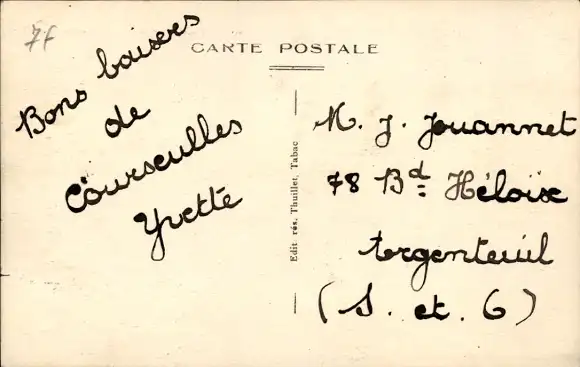 7f
CARTE POSTALE
Bons baisers
de
Courseulles
Yvette
Edit rés. Thuillet, Tabac
M. J. Jouannet
78 Bd Héloïse
Argenteuil
(S. et. O)